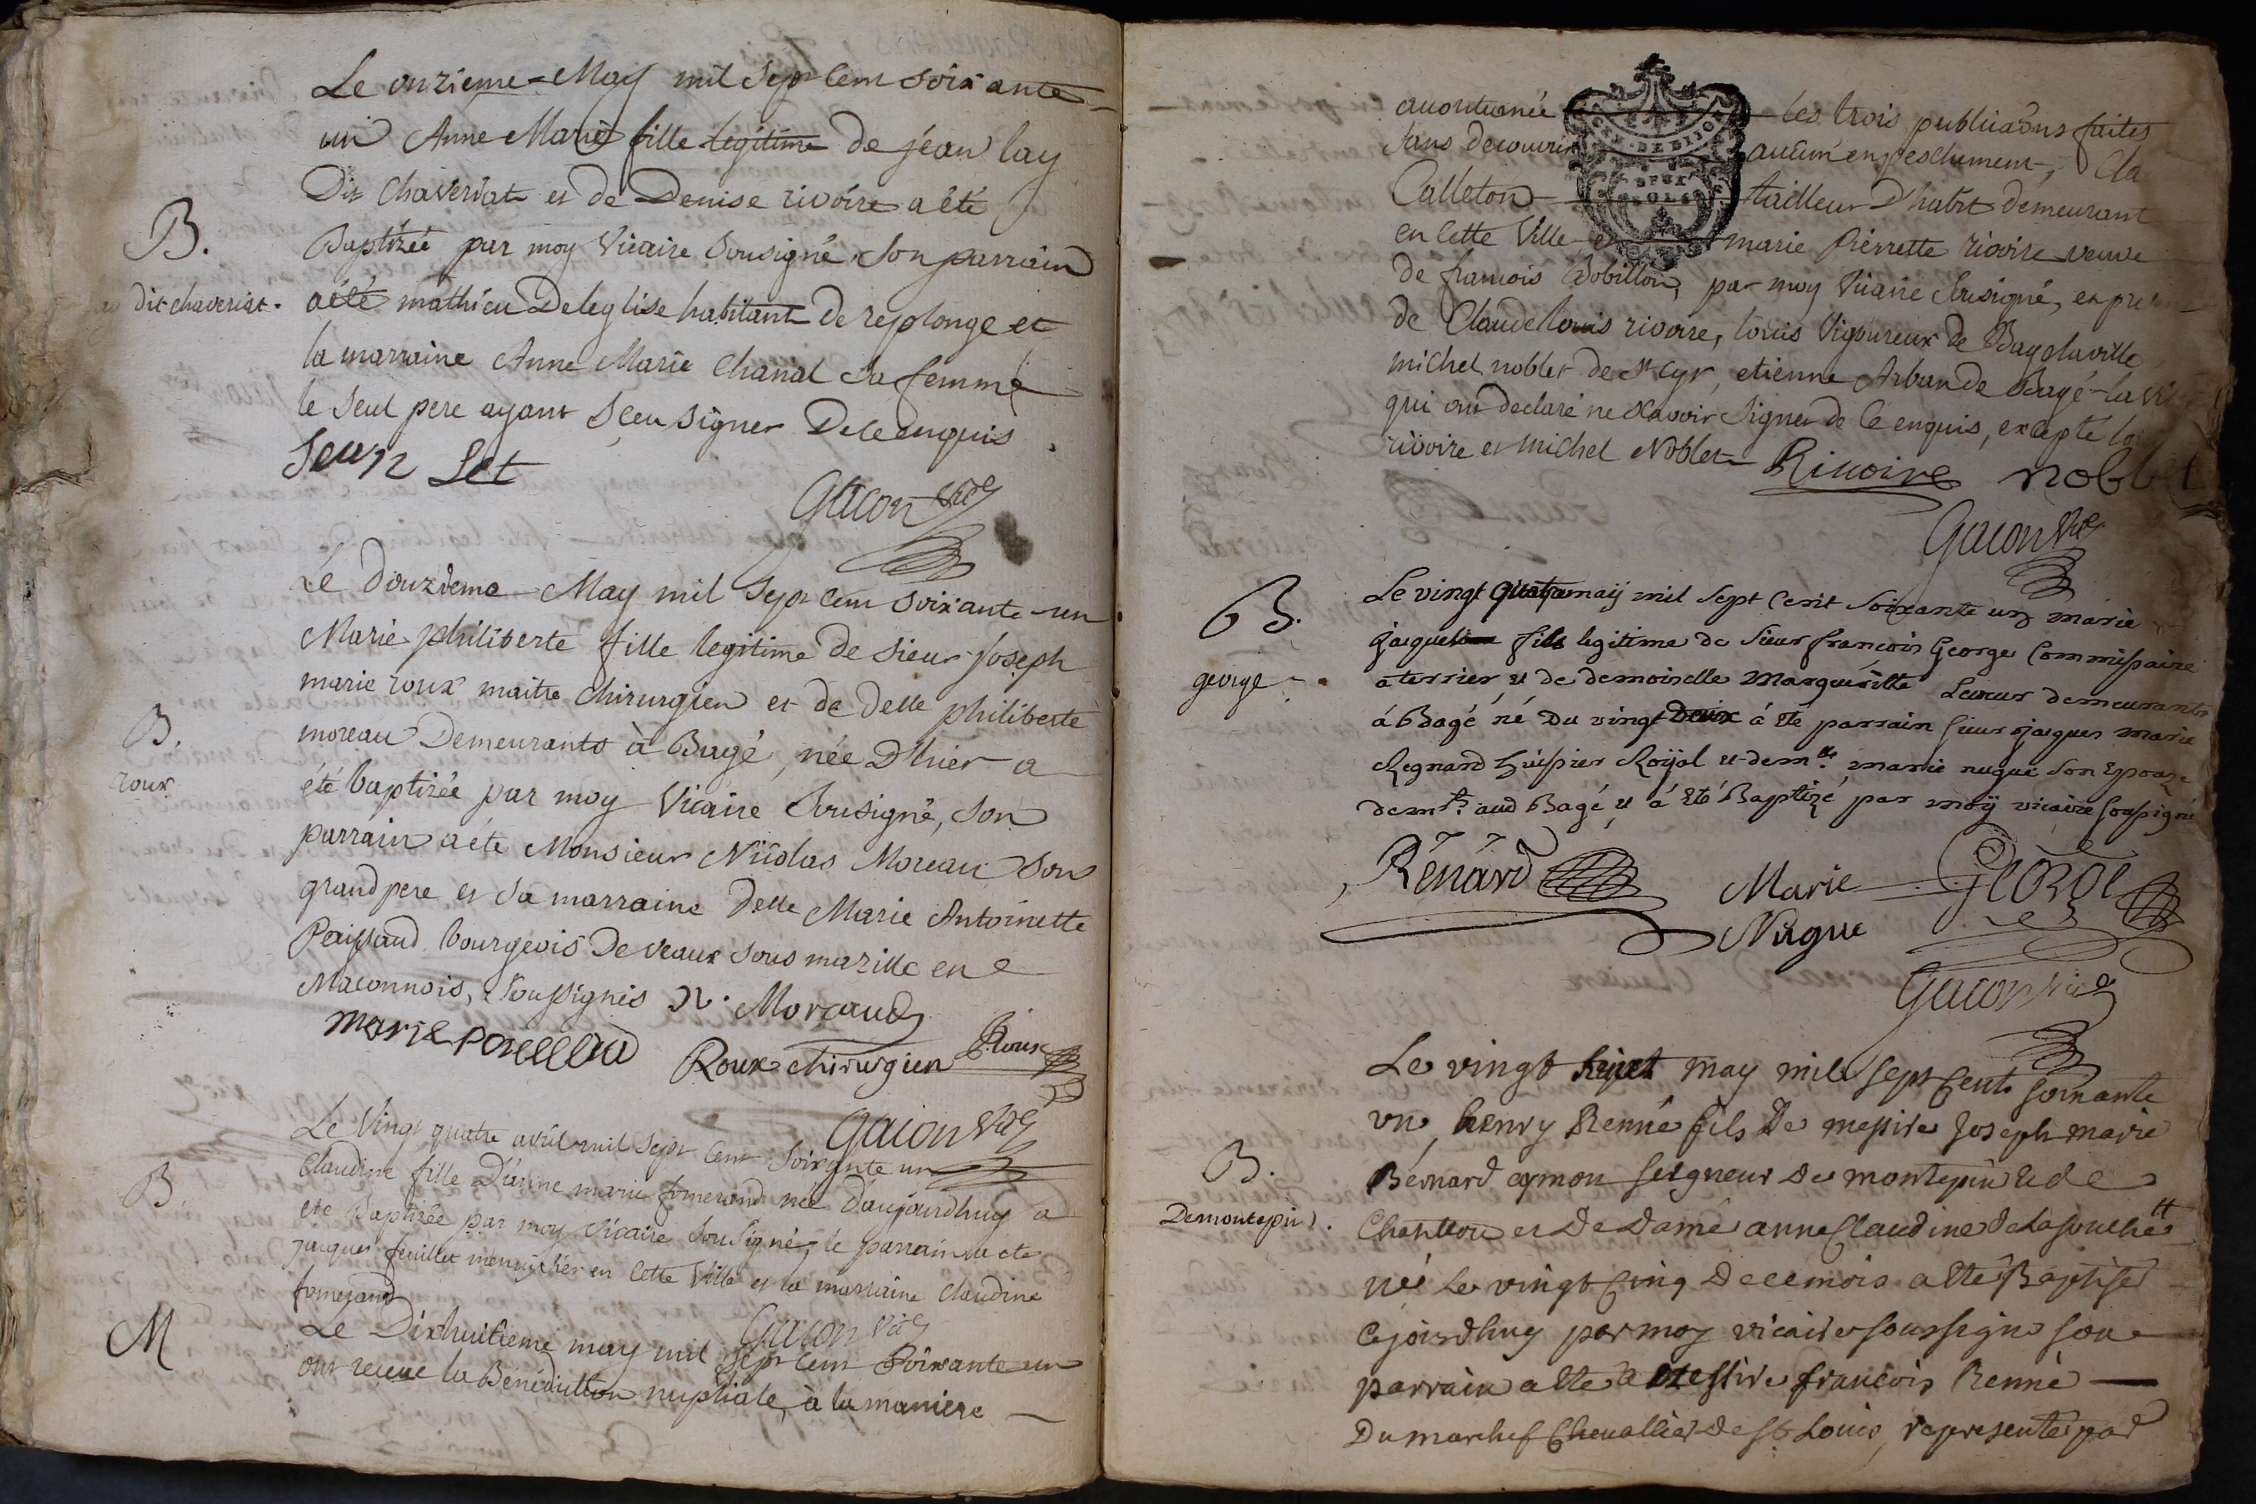 Le onzieme May mil sept cent soixante
un Anne Marie fille legitime de jean lay
Dit Chaveriat et de Denise rivoire a été
B.
Baptizée par moy Vicaire sousigné, son parrain
dit chaveriat.
a été mathieu Deleglise habitant de replonge et
la marraine Anne Marie Chanal sa femme
le seul pere ayant sceu signer De ce enquis.
Jean Let
Gacon vic
Le douzieme May mil sept cent soixante un
Marie philiberte fille legitime de sieur joseph
marie roux maitre chirurgien et de delle philiberte
B.
moreau Demeurants à Bagé, née D'hier a
roux
été baptizée par moy Vicaire sousigné, son
parrain a été Monsieur Nicolas Moreau son
grand pere et sa marraine delle Marie Antoinette
bourgeois De veaux sous mazille en
Maconnois, soussignés N. Moreaud
marie
Roux chirurgien Roux
Gacon vic
Le Vingt quatre avril mil sept cent soixante un
B.
Claudine fille D'anne marie née d'aujourdhuy a
ete baptizée par moy Vicaire sousigné, le parrain a ete
jacques feuillet menuisier en cette ville et la marraine claudine
Gacon vic
M
Le Dixhuitieme may mil sept cent soixante un
ont recue la Benediction nuptiale, à la maniere
GEN. DE DIJON
DEUX
SOLS
acoutumée les trois publicaõns faites
sans decouvrir aucun empeschement, Cla
Calleton tailleur D'habit demeurant
en cette Ville et marie pierrette rivoire veuve
de francois Bobillon, par moy Vicaire sousigné, en pre
de Claude louis rivoire, louis Vigoureux de Bagelaville
michel noblet de St Cyr, etienne Arban de Bagé la vi
qui ont declaré ne scavoir signer de ce enquis, excepté
rivoire et michel Noblet Rivoire noblet
Gacon vic
B.
Le vingt quatre maÿ mil sept cent soixante un marie
jacques fils legitime de sieur francois George Commissaire
george
a terrier et de demoiselle Margueritte Leveur demeurants
á Bagé né du vingt deux á été parrain sieur jacques marie
Regnard huissier Roÿal et demlle marie nugue son Epouze
demts aud Bagé, et á eté Baptizé par moÿ vicaire soussigné
Rénard Marie George
Nugue
Gacon vic
Le vingt huict may mil sept cent soixante
un, henry Renné fils De messire Joseph marie
B.
Bernard aymon seigneur De montepin et de
Demontepin.
et De Dame anne Claudine de la souche
né le vingt cinq De ce mois a été Baptisé
cejourdhuy par moy vicaire soussigné son
parrain a été Messire francois Renné
Dumarchef Chevallier de st Louis, representé par